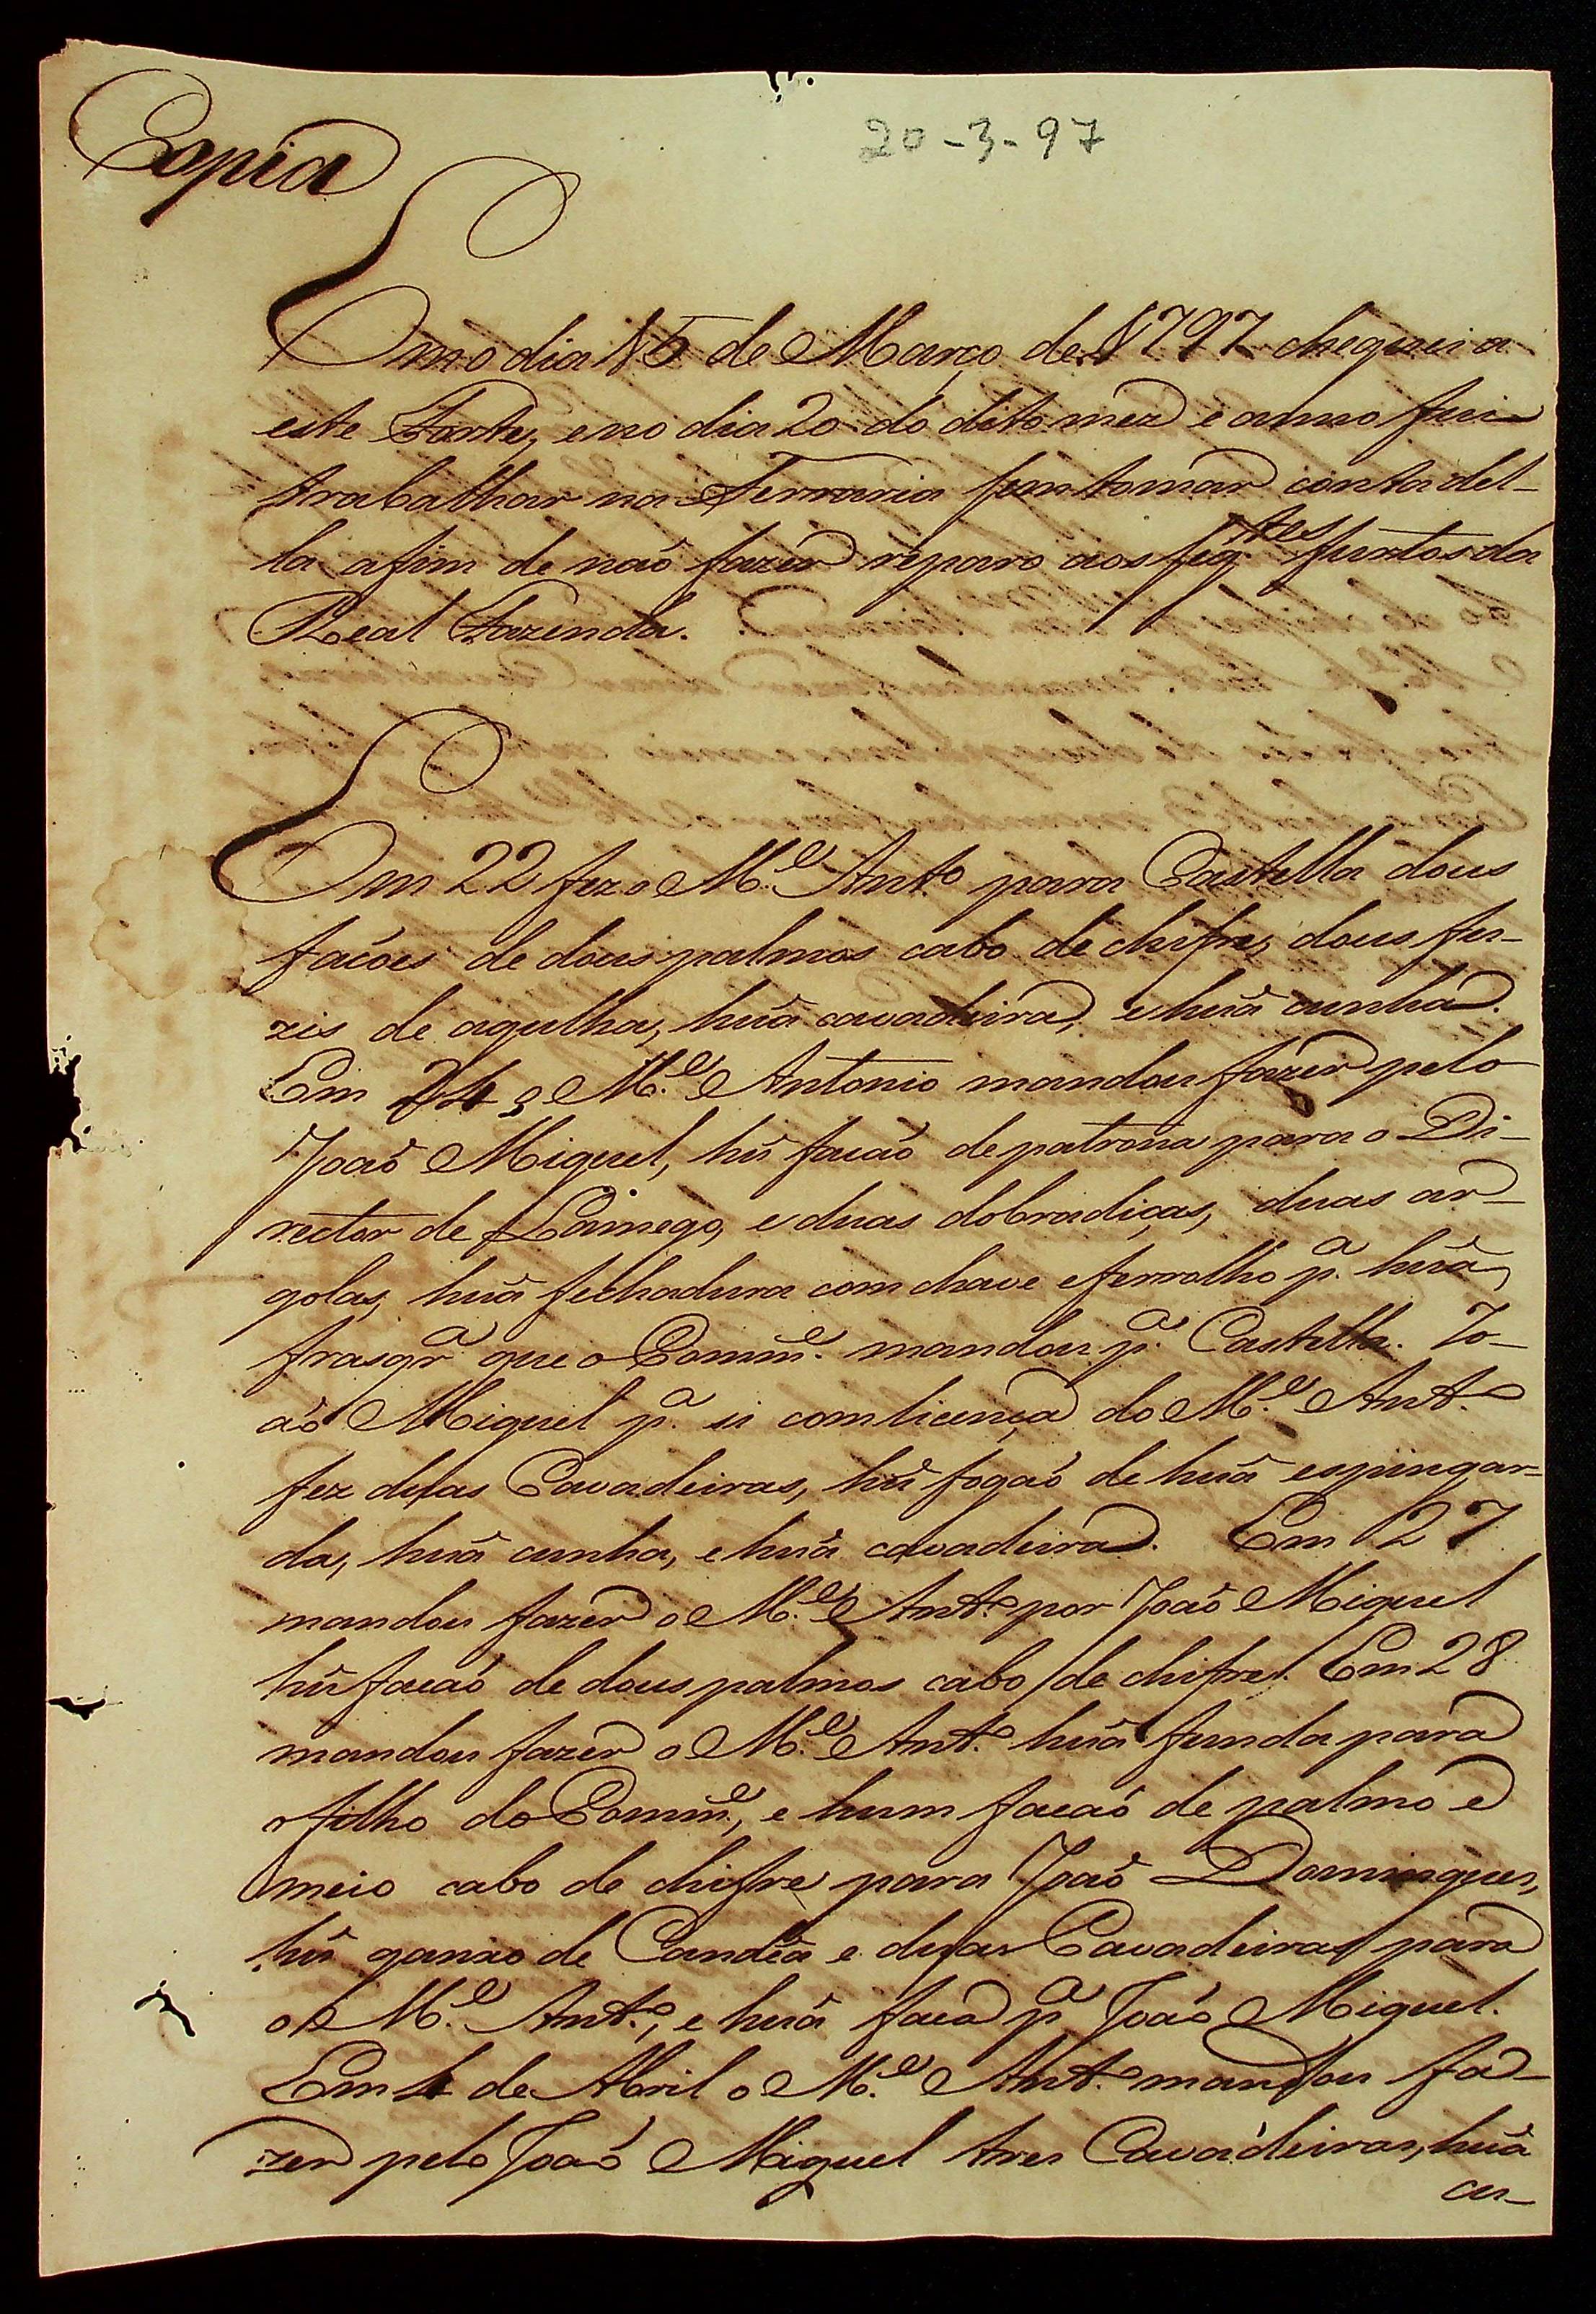 Copia
20-3-97
Em o dia 15 de Março de 1797 cheguei a
este Forte, e no dia 20 do dito mez e anno fui
trabalhar na Ferraria sem tomar conta del-
la afim de naõ fazer reparo aos seg.tes furtos da
Real Fazenda.
Em 22 fez o M.e Ant.o para Castella dous
facões de dous palmos cabo de chifre, dous fu-
zis de agulha, huã cavadeira, e huã cunha.
Em 24 o M.e Antonio mandou fazer pelo
Joaõ Miguel, hũ facaõ de patrona para o Di-
rector de Lamego, e duas dobradiças, duas ar-
golas, huã fechadura com chave e ferrolho p.a huã
frasqr.a que o Comm.e mandou p.a Castella. Jo-
aõ Miguel p.a si com licença do M.e Ant.o
fez duas Cavadeiras, hũ fogaõ de huã espingar-
da, huã cunha, e huã cavadeira. Em 27
mandou fazer o M.e Ant.o por Joaõ Miguel
hũ facaõ de dous palmos cabo de chifre. Em 28
mandou fazer o M.e Ant.o huã funda para
o filho do Comm.e, e hum facaõ de palmo e
meio cabo de chifre para Joaõ Domingues,
hũ ganxo de Candêa e duas Cavadeiras para
o M.e Ant.o, e huã faca p.a Joaõ Miguel.
Em 4 de Abril o M.e Ant.o mandou fa-
zer pelo Joaõ Miguel tres Cavadeiras, huã
cu-